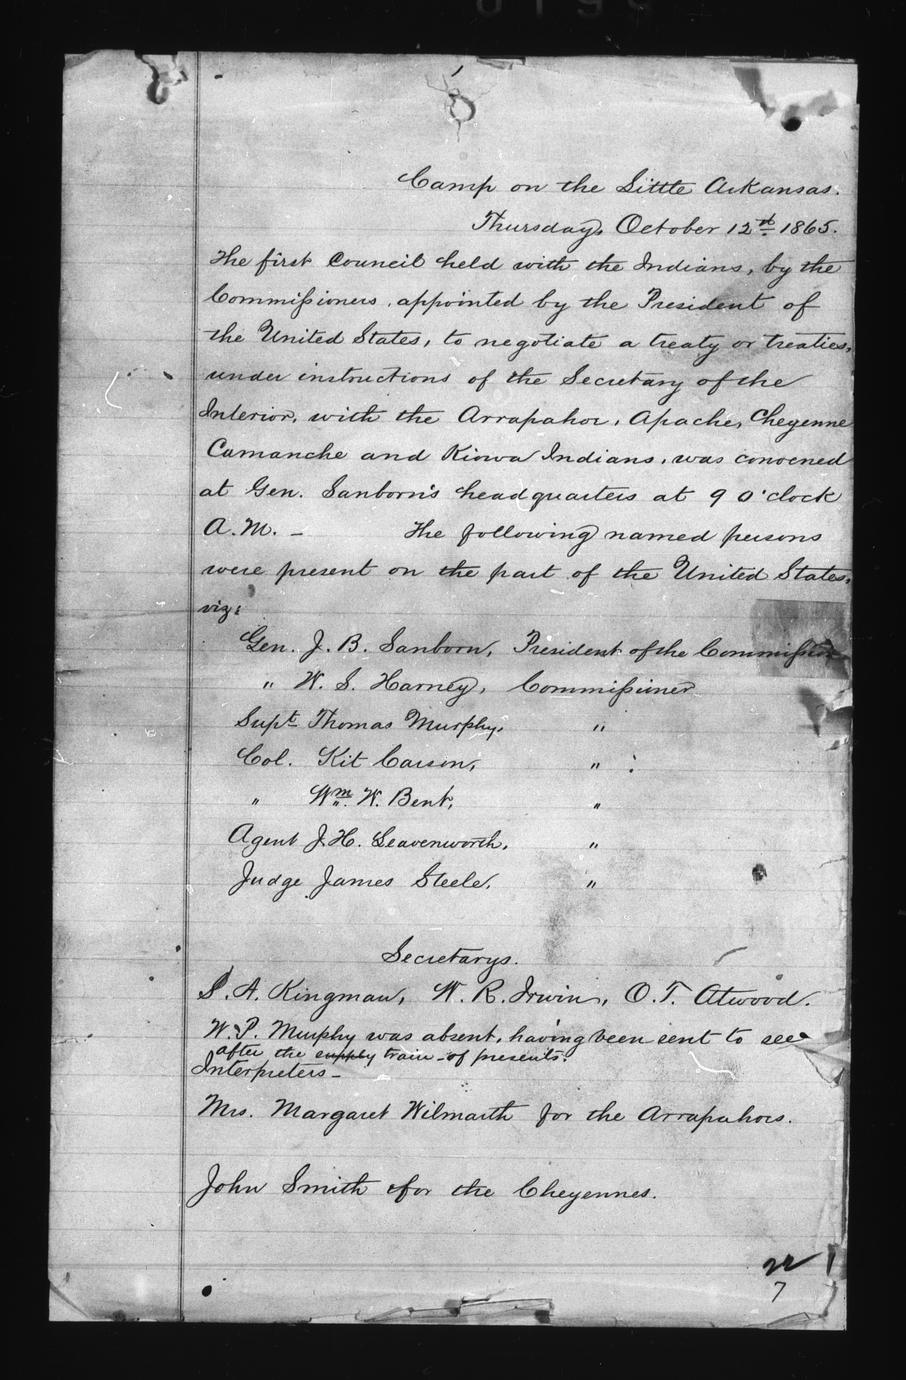 Camp on the Little Arkansas.
Thursday, October 12th 1865.
The first Council held with the Indians, by the
Commissioners, appointed by the President of
the United States, to negotiate a treaty or treaties,
under instructions of the Secretary of the
Interior, with the Arrapahoe, Apache, Cheyenne
Camanche and Kiowa Indians, was convened
at Gen. Sanborn's headquarters at 9 O'clock
A.M. – The following named persons
were present on the part of the United States,
viz:
Gen. J. B. Sanborn, President of the Commission
" W. S. Harney, Commissioner
Supt Thomas Murphy, "
Col. Kit Carson, "
" Wm. W. Bent, "
Agent J. H. Leavenworth, "
Judge James Steele, "
Secretarys.
S. A. Kingman, W. R. Irwin, O. T. Atwood.
W. P. Murphy was absent, having been sent to see
after the supply train of presents.
Interpreters –
Mrs. Margaret Wilmarth for the Arrapahoes.
John Smith for the Cheyennes.
7